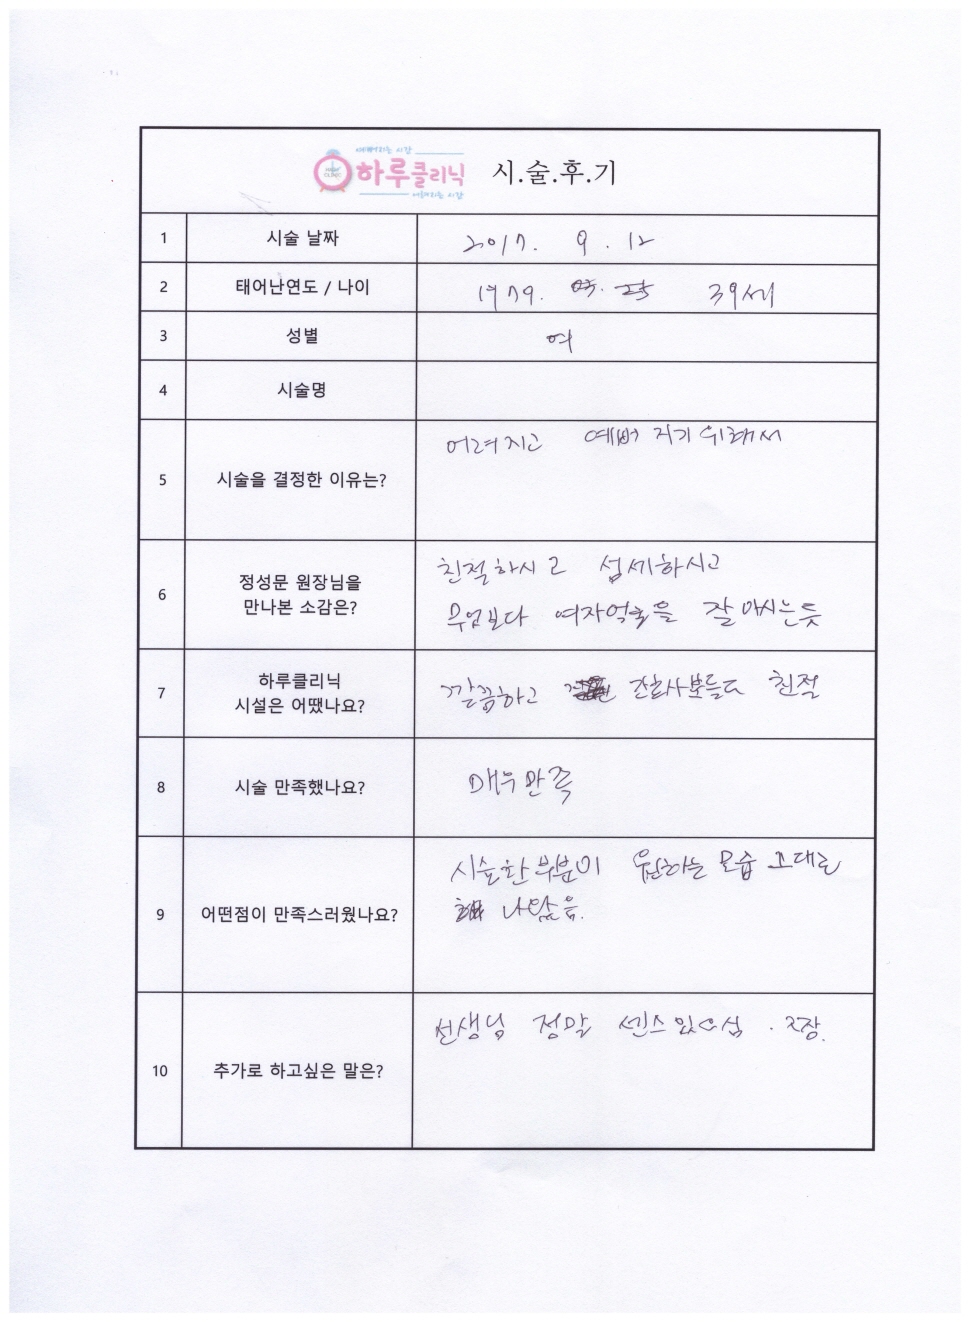 예뻐지는 시간
하루클리닉 시.술.후.기
어려지는 시간
1 시술 날짜 2017. 9. 12
2 태어난연도 / 나이 1979. 39세
3 성별 여
4 시술명
5 시술을 결정한 이유는? 어려지고 예뻐지기위해서
6 정성문 원장님을 만나본 소감은?
친절하시고 섬세하시고
무엇보다 여자얼굴을 잘 아시는듯
7 하루클리닉 시설은 어땠나요? 깔끔하고 간호사분들도 친절
8 시술 만족했나요? 매우만족
9 어떤점이 만족스러웠나요?
시술한부분이 원하는 모습 그대로
나왔음.
10 추가로 하고싶은 말은? 선생님 정말 센스있으심. 짱.